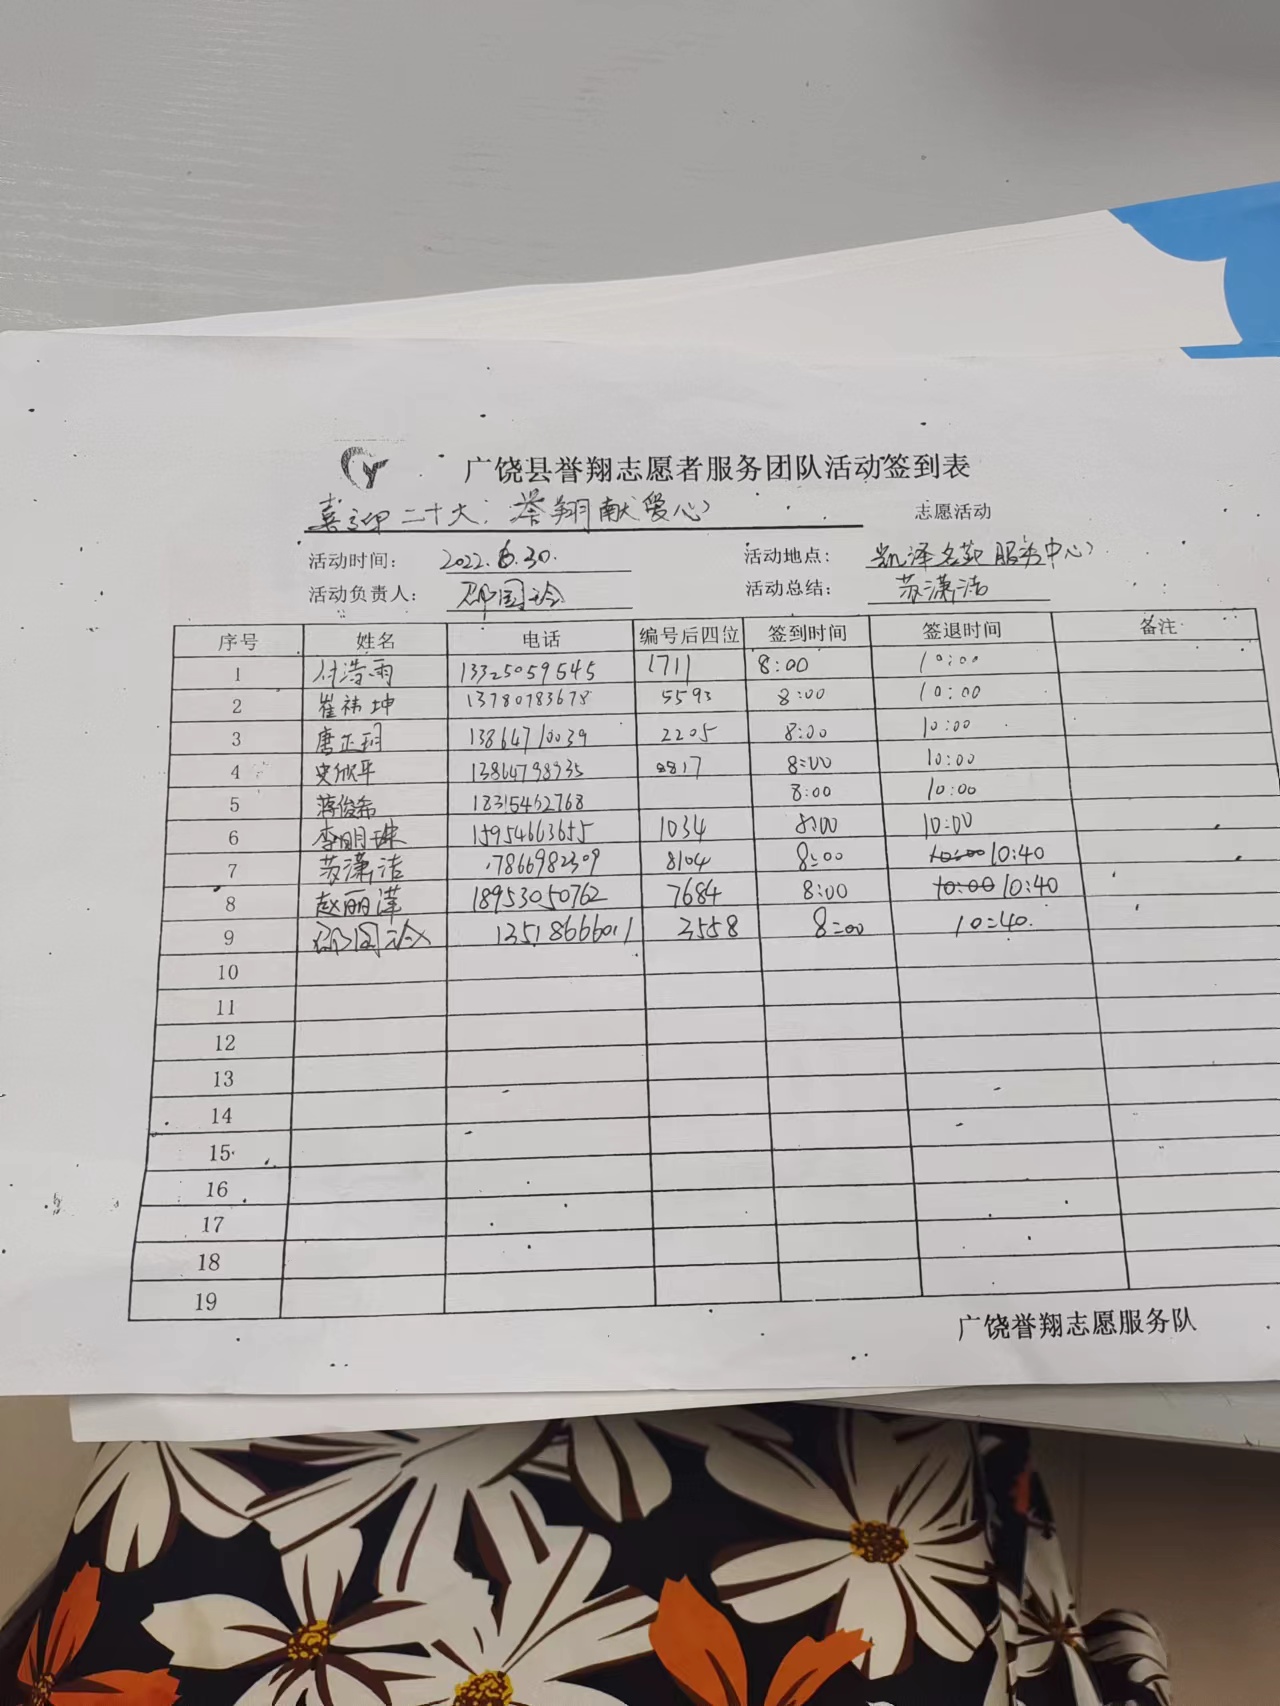 广饶县誉翔志愿者服务团队活动签到表
喜迎二十大，誉翔献爱心 志愿活动
活动时间： 2022.6.30. 活动地点： 凯泽名苑服务中心
活动负责人： 邵国玲 活动总结： 苏潇洁
序号 姓名 电话 编号后四位 签到时间 签退时间 备注
1 付浩雨 13325059545 1711 8:00 10:00
2 崔祎坤 13780783678 5593 8:00 10:00
3 唐正玥 13864710039 2205 8:00 10:00
4 史欣平 13864798935 8817 8:00 10:00
5 蒋俊希 18315462768 8:00 10:00
6 李明珠 15954663655 1034 8:00 10:00
7 苏潇洁 17866982309 8104 8:00 10:00 10:40
8 赵丽萍 18953050762 7684 8:00 10:00 10:40
9 邵国玲 13518666011 3558 8:00 10:40.
10
11
12
13
14
15
16
17
18
19
广饶誉翔志愿服务队